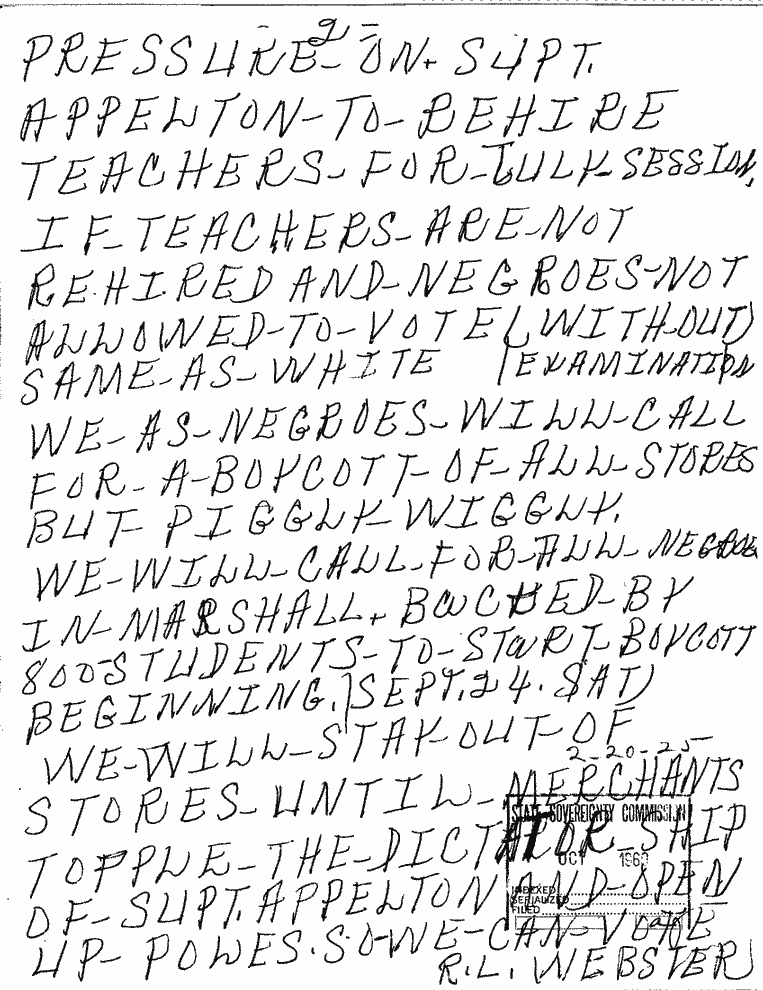 - 2 -
PRESSURE- ON- SUPT.
APPELTON-TO-REHIRE
TEACHERS-FOR-JULY-SESSION,
IF-TEACHERS-ARE-NOT
REHIRED AND-NEGROES-NOT
ALLOWED-TO-VOTE (WITHOUT)
SAME-AS-WHITE (EXAMINATION
WE-AS-NEGROES-WILL-CALL
FOR-A-BOYCOTT-OF-ALL-STORES
BUT PIGGLY-WIGGLY.
WE-WILL-CALL-FOR-ALL-NEGROE
IN-MARSHALL, BACKED-BY
800-STUDENTS-TO-START-BOYCOTT
BEGINNING.) SEPT. 24. SAT)
WE-WILL-STAY-OUT-OF
2-20-25-
STORES-UNTIL-MERCHANTS
STATE SOVEREIGNTY COMMISSION
TOPPLE-THE-DICTATOR-SHIP
OCT 1960
INDEXED
SERIALIZED
FILED
OF-SUPT. APPELTON AND-OPEN
UP-POLES. SO-WE-CAN-VOTE
R.L. WEBSTER